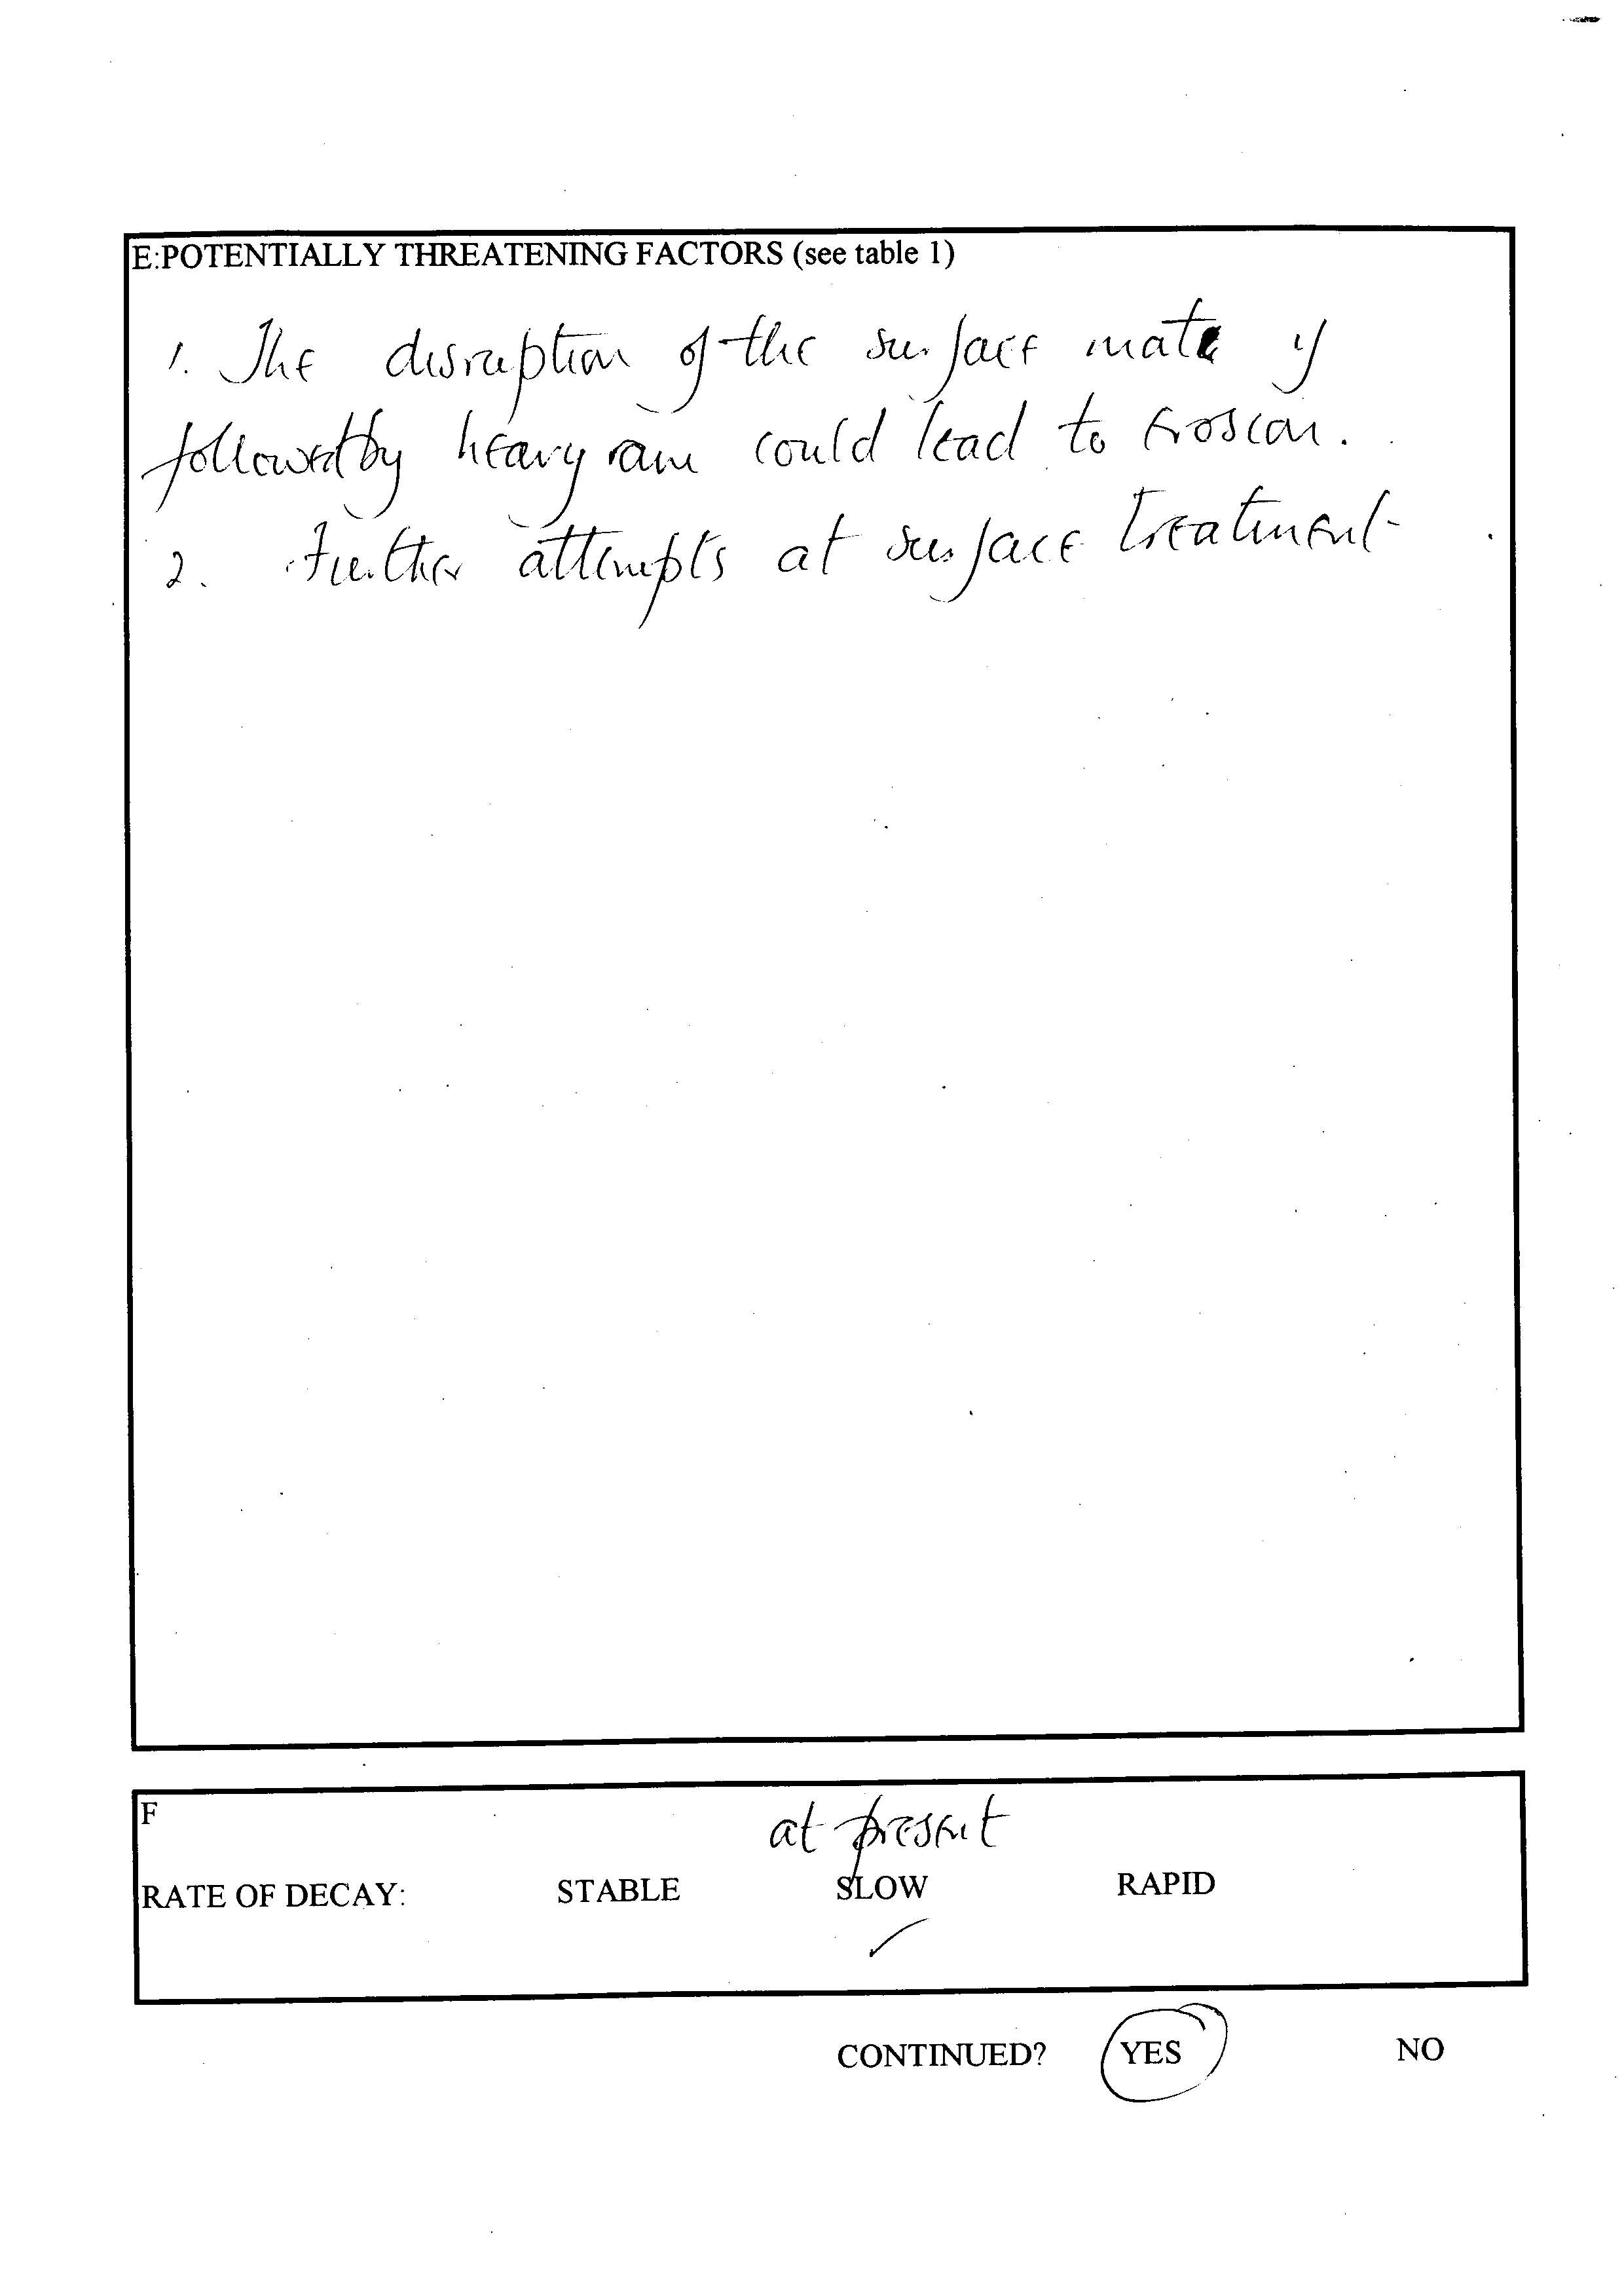 E:POTENTIALLY THREATENING FACTORS (see table 1)
1. The disruption of the surface mate if
followed by heavy rain could lead to erosion.
2. Further attempts at surface treatment
F
at present
RATE OF DECAY: STABLE SLOW RAPID
CONTINUED? YES NO